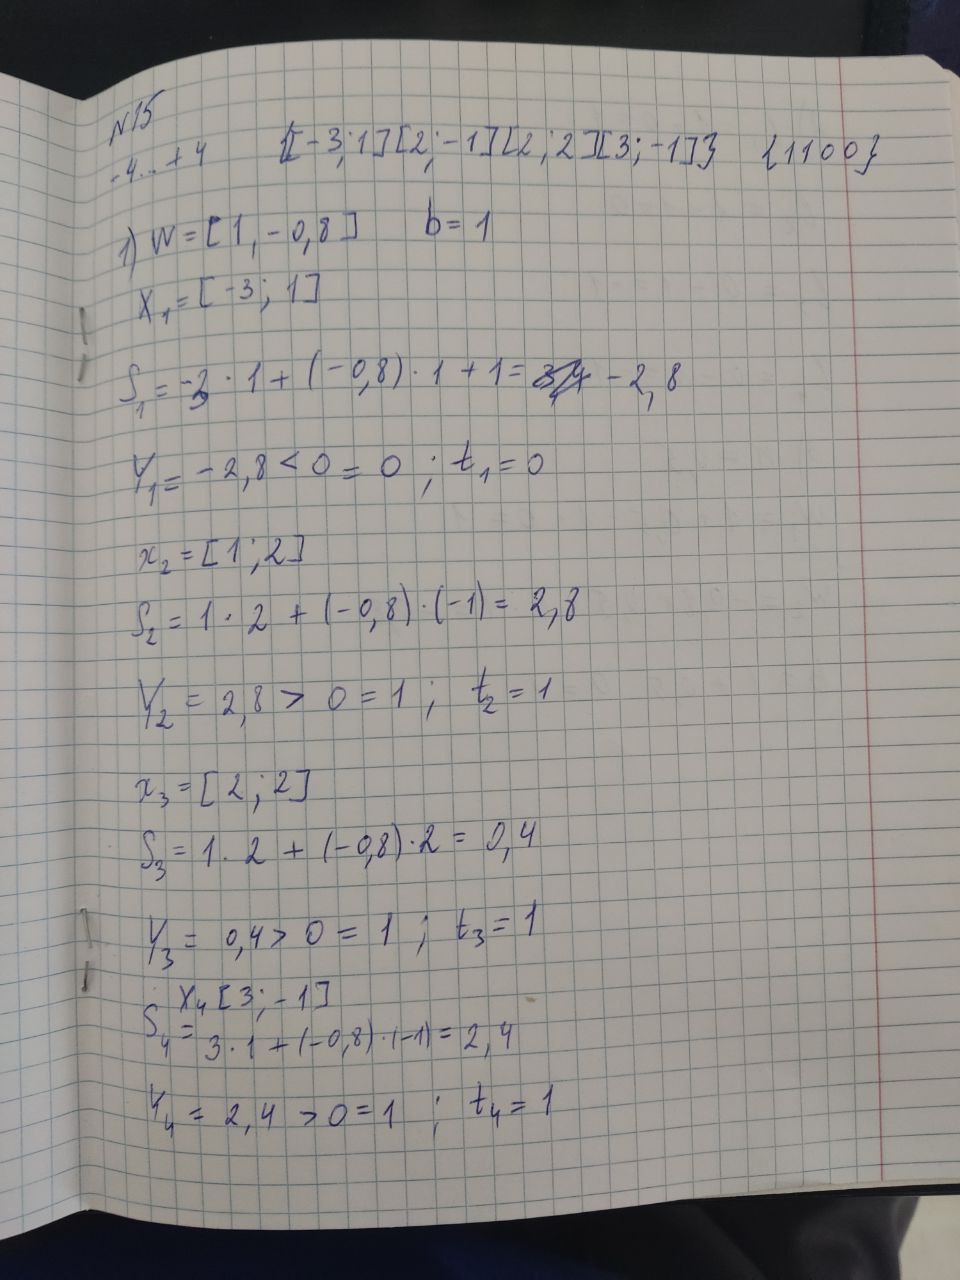 N15
-4...+4 {[-3;1][2;-1][2;2][3;-1]} {1100}
1) W=[1,-0,8] b=1
X₁=[-3; 1]
S₁=-3·1+(-0,8)·1+1= -2,8
Y₁=-2,8<0=0; t₁=0
x₂=[1;2]
S₂=1·2+(-0,8)·(-1)=2,8
Y₂=2,8>0=1; t₂=1
x₃=[2;2]
S₃=1·2+(-0,8)·2=0,4
Y₃=0,4>0=1; t₃=1
X₄[3;-1]
S₄=3·1+(-0,8)·(-1)=2,4
Y₄=2,4>0=1; t₄=1